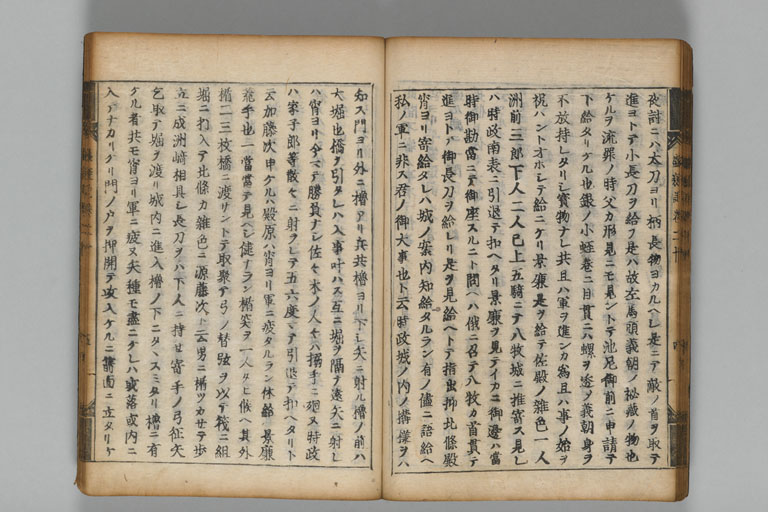 夜討ニハ太刀ヨリ柄長物ヨカルヘシ是ニテ敵ノ首ヲ取テ
進ヨトテ小長刀ヲ給フ是ハ故左馬頭義朝ノ秘蔵ノ物也
ケルヲ流罪ノ時父カ形見ニモ見ントテ池尼御前ニ申請テ
下給タリケル也銀ノ小蛭巻ニ目貫ニハ螺ヲ透ノ義朝身ヲ
不放持レタリシ寳物ナレ共且ハ軍ヲ進ンカ為且ハ事ノ始ヲ
祝ハントオホシテ給ニケリ景廉是ヲ給テ佐殿ノ雑色一人
洲前三郎下人二人已上五騎ニテ八牧城ニ推寄ス見レ
ハ時政南表ニ引退テ扣ヘタリ景廉ヲ見テイカニ御邊ハ當
時御勘當ニテ御座スルニト問ヘハ俄ニ召テ八牧カ首貫テ
進ヨトテ御長刀ヲ給レリ是ヲ見給ヘトテ指出抑北條殿
宵ヨリ寄給タレハ城ノ案内知給タルラン有ノ儘ニ語給ヘ
私ノ軍ニ非ス君ノ御大事也ト云時政城ノ内ノ搆様ヲハ
知ス門ヨリ外ニ櫓アリ兵共櫓ヨリ下シ矢ニ射ル櫓ノ前ハ
大堀也橋ヲ引タレハ入事叶ハス互ニ堀ヲ隔テ遠矢ニ射シ
ハ宵ヨリ今マテ勝負ナシ佐々木ノ人々ハ搦手ニ廻ヌ時政
ハ家子郎等散々ニ射ラレテ五六度マテ引退テ扣ヘタリト
云加藤次申ケルハ殿原ハ宵ヨリ軍ニ疲タルラン休給ヘ景廉
荒手也一當當テ見ヘシ健ナラン楯突ヲ一人タヒ候ヘ其外
楯二三枚橋ニ渡サントテ取聚テ弓ノ替弦ヲ以テ筏ニ組
堀ニ打入テ北條カ雑色ニ源藤次ト云男ニ楯ツカサテ歩
立ニ成洲崎相具シ長刀ヲハ下人ニ持セ寄手ノ弓征矢
乞取テ堀ヲ渡リ城内ニ進入櫓ノ下ニタヽスミタリ櫓ニ有
ケル者共モ宵ヨリ軍ニ疲ヌ矢種モ盡ニケレハ或落或内ニ
入テナカリケリ門ノ戸ヲ押開テ攻入ケルニ